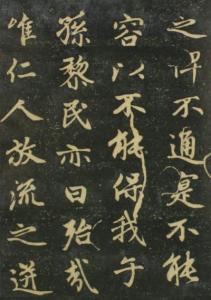 之俾不通是不能
容以不能保我子
孫黎民亦曰殆哉
唯仁人放流之迸